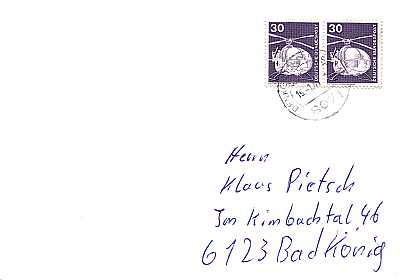 30 30
DEUTSCHE BUNDESPOST DEUTSCHE BUNDESPOST
Herrn
Klaus Pietsch
Im Kimbachtal 46
6123 Bad König